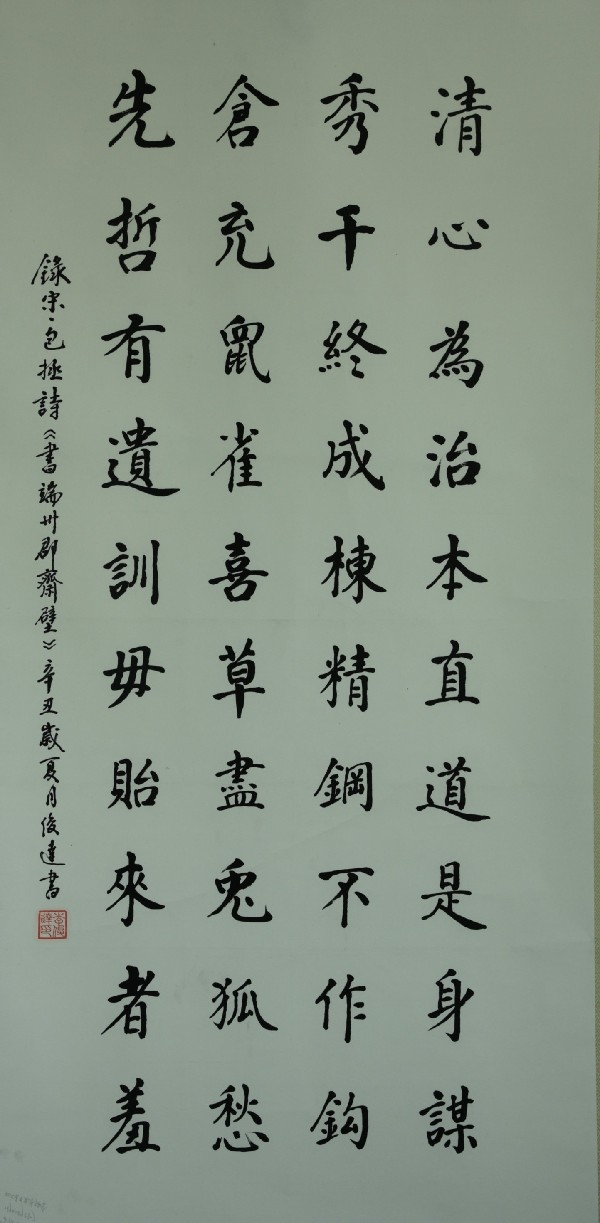 清心為治本直道是身謀
秀干終成棟精鋼不作鈎
倉充鼠雀喜草盡兎狐愁
先哲有遺訓毋貽來者羞
錄宋·包拯詩《書端州郡齋壁》辛丑歲夏月俊達書